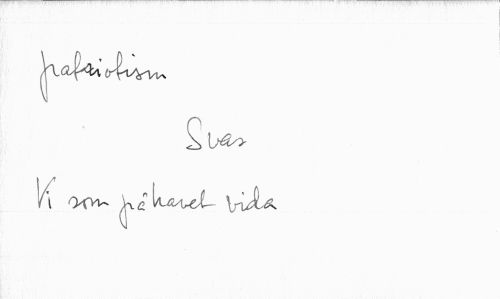 patriotism
Svas
Vi som på havet vida